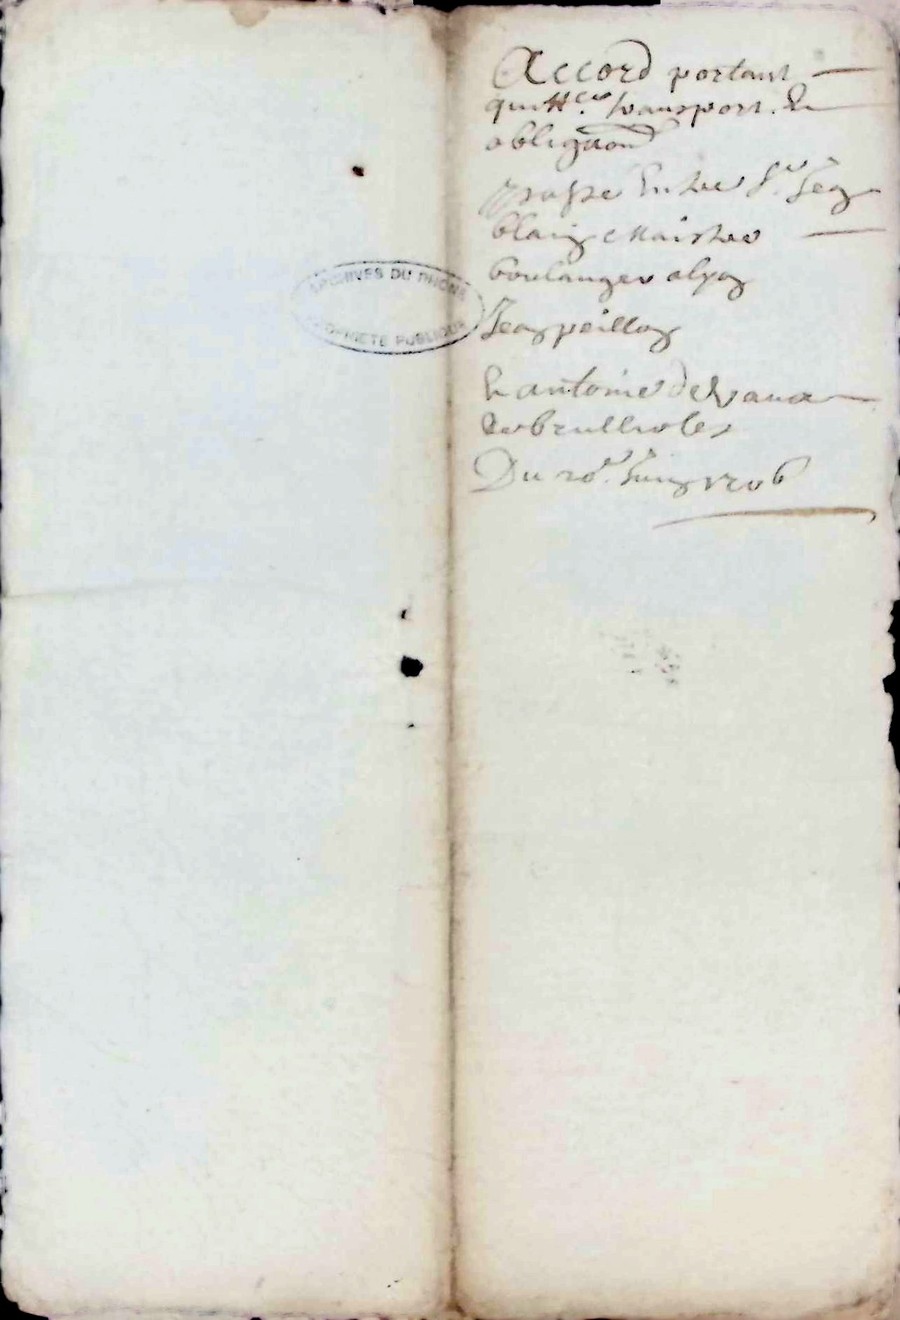 Accord portant
quitt.ce transport. Et
obligaon
passe Entre Sr. Jean
blain Maistre
boulanger a lyon
Jean peillon
Et antoine deVaux
de brullioles
Du 20e. Juin 1706
ARCHIVES DU RHONE
PROPRIETE PUBLIQUE